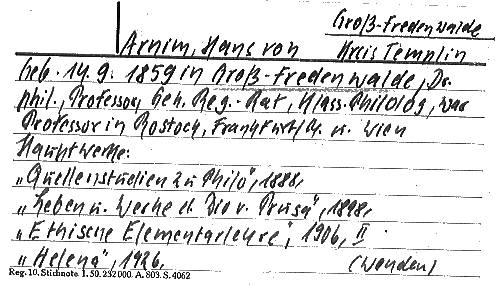 Groß-Fredenwalde
Arnim, Hans von Kreis Templin
Geb. 14.9. 1859 in Groß-Fredenwalde, Dr.
phil., Professor, Geh. Reg.-Rat, Klass. Philolog, war
Professor in Rostock, Frankfurt/M. u. Wien
Hauptwerke:
„Quellenstudien zu Philo", 1888,
„Leben u. Werke d. Dio v. Prusa", 1898,
„Ethische Elementarlehre", 1906, II
„Helena", 1926, (Wenden)
Reg. 10. Stichnote 1. 50. 232000. A. 803. S. 4062